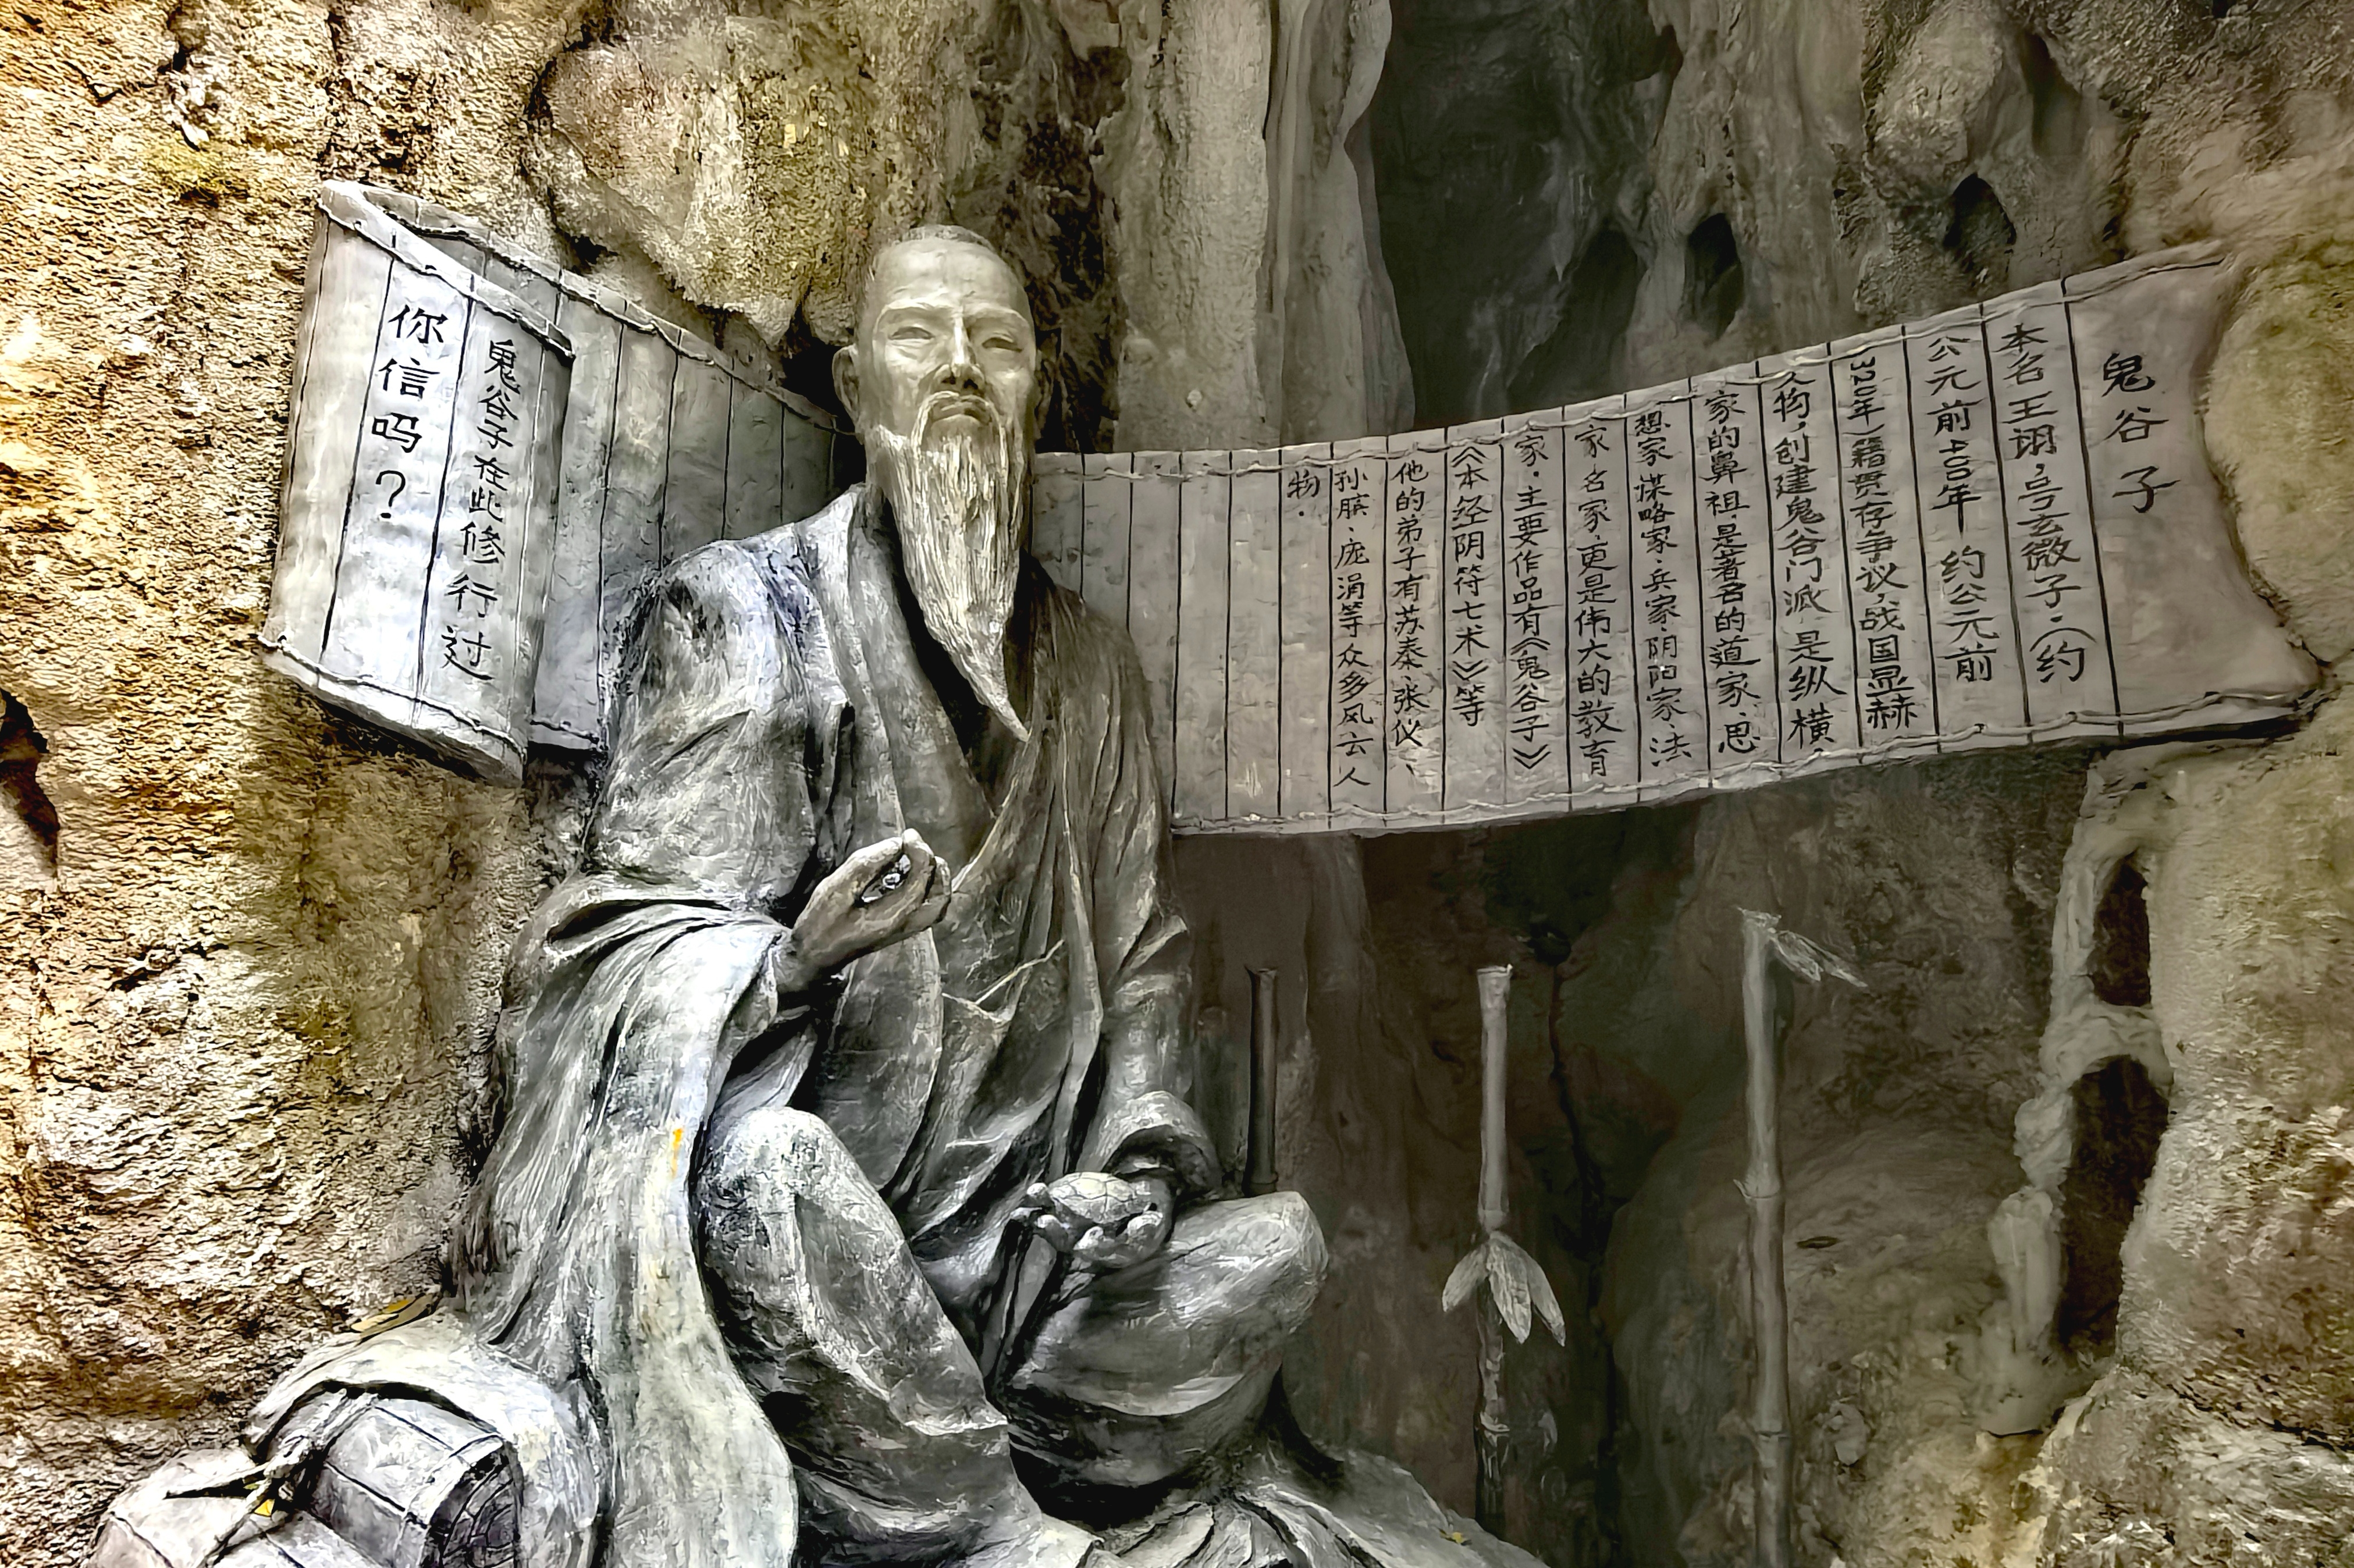 鬼谷子
本名王诩，号玄微子·（约
公元前400年 约公元前
320年）籍贯存争议，战国显赫
人物，创建鬼谷门派，是纵横
家的鼻祖·是著名的道家、思
想家·谋略家·兵家·阴阳家·法
家、名家，更是伟大的教育
家·主要作品有《鬼谷子》
《本经阴符七术》等
他的弟子有苏秦、张仪、
孙膑、庞涓等众多风云人
物·
鬼谷子在此修行过
你信吗？